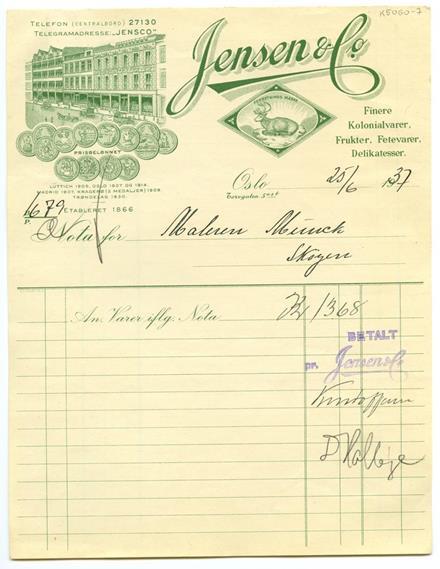 K5060-7
TELEFON (CENTRALBORD) 27130
TELEGRAMADRESSE: „JENSCO"
Jensen & Co.
FORSVUNDNE MÆRKE
PRISBELØNNET
LÜTTICH 1905, OSLO 1907 OG 1914,
MADRID 1907, KRAGERØ (2 MEDALJER) 1909,
TRØNDELAG 1930.
ETABLERET 1866
Finere
Kolonialvarer,
Frukter, Fetevarer,
Delikatesser.
Oslo 25/6 1937
Torvgaten 5
1679
Nota for Maleren Munch
Skøyen
An Varer iflg. Nota Kr 13.68
BETALT
pr. Jensen & Co